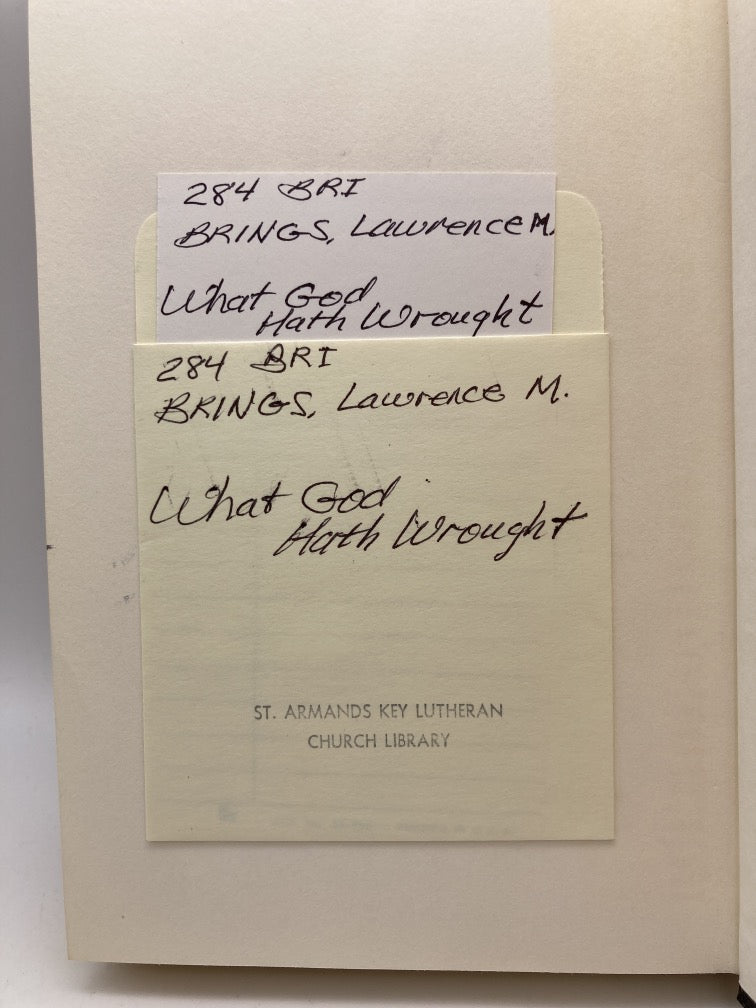 284 BRI
BRINGS, Lawrence M.
What God
Hath Wrought
284 BRI
BRINGS, Lawrence M.
What God
Hath Wrought
ST. ARMANDS KEY LUTHERAN
CHURCH LIBRARY